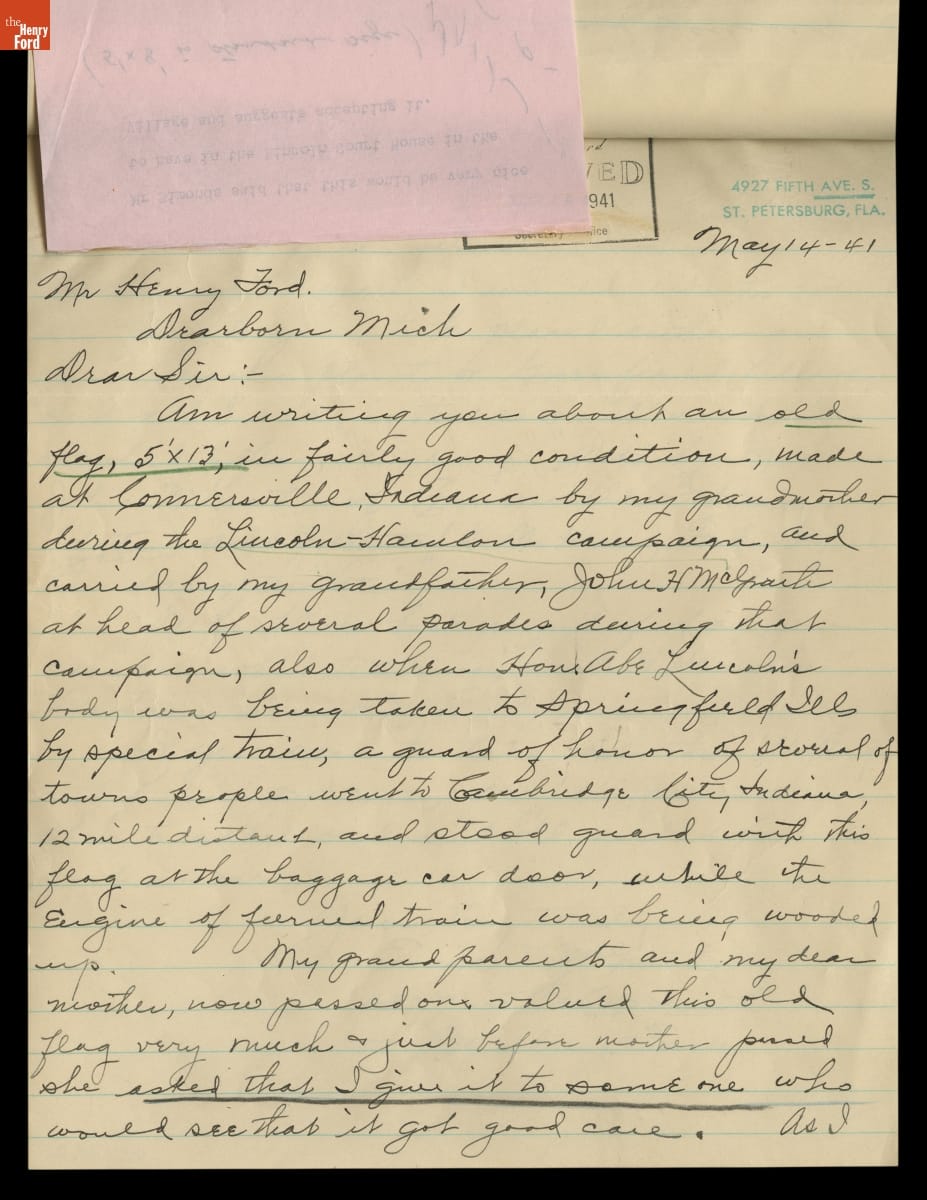 the
Henry
Ford
(5'x8' is standard
village and suggests accepting it.
to have in the Lincoln Court House in the
Mr Simonds said that this would be very nice
VED
941
4927 FIFTH AVE. S.
ST. PETERSBURG, FLA.
May 14-41
Mr Henry Ford.
Dearborn Mich
Dear Sir:-
Am writing you about an old
flag, 5'x13', in fairly good condition, made
at Connersville, Indiana by my grandmother
during the Lincoln-Hamlon campaign, and
carried by my grandfather, John H McGrath
at head of several parades during that
campaign, also when Hon. Abe Lincoln's
body was being taken to Springfield Ills
by special train, a guard of honor of several of
towns people went to Cambridge City, Indiana,
12 mile distant, and stood guard with this
flag at the baggage car door, while the
Engine of funeral train was being wooded
up. My grand parents and my dear
mother, now passed on, valued this old
flag very much & just before mother passed
she asked that I give it to some one who
would see that it got good care. As I